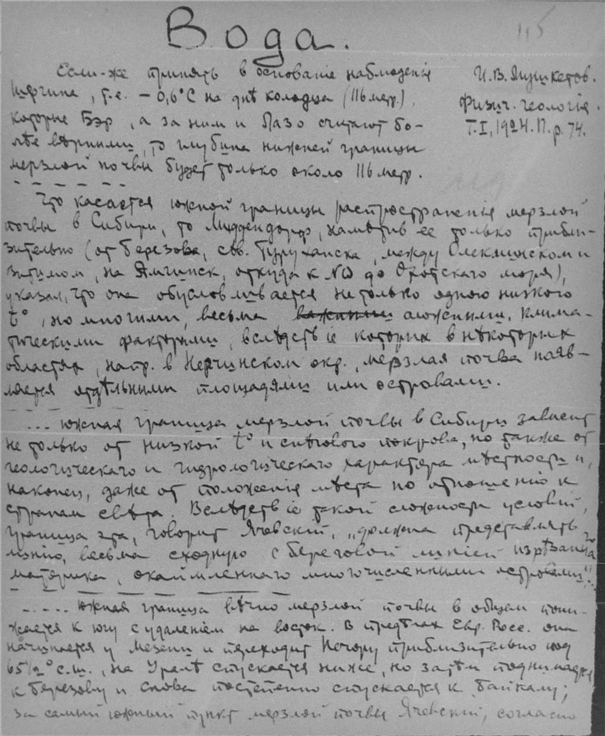 115
Вода.
Если-же принять в основание наблюденiя
Шергина, т.е. –0,6°C на днѣ колодца (116 метр.),
которые Бэр, а за ним и Лазо считают бо-
лѣе вѣрными, то глубина нижней границы
мерзлой почвы будет только около 116 метр.
И.В. Мушкетов.
Физич. геологiя.
Т.I, 1924. П. р. 74.
Что касается южной границы распространенiя мерзлой
почвы в Сибири, то Миддендорф, намѣтив ее только прибли-
зительно (от Березова, свв. Туруханска, между Олекминском и
Витимом, на Ямгинск, откуда к NO до Охотского моря),
указал, что она обусловливается не только одною низкого
t°, но многими, весьма важными сложными, клима-
тическими факторами, вслѣдствiе которых в нѣкоторых
областях, напр. в Нерчинском окр., мерзлая почва появ-
ляется отдѣльными площадями или островами.
... южная граница мерзлой почвы в Сибири зависит
не только от низкой t° и снѣгового покрова, но также от
геологического и гидрологического характера мѣстности и,
наконец, даже от положенiя мѣста по отношенiю к
странам свѣта. Вслѣдствiе такой сложности условiй,
граница эта, говорит Ячевский, „должна представлять
линiю, весьма сходную с береговой линiей изрѣзаннаго
материка, окаймленнаго многочисленными островами".
..... Южная граница вѣчно мерзлой почвы в общем пони-
жается к югу с удаленiем на восток. В предѣлах Евр. Росс. она
начинается у Мезени и переходит Печору приблизительно под
65 1/2° с.ш., на Уралѣ спускается ниже, но затѣм поднимается
к Березову и снова постепенно спускается к Байкалу;
за самый южный пункт мерзлой почвы Ячевский, согласно